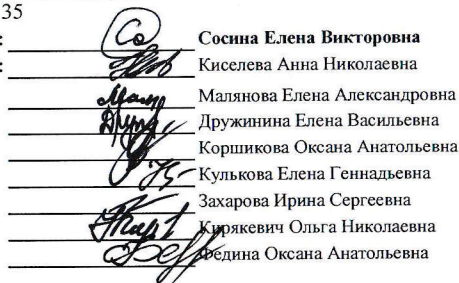 35
: Сосина Елена Викторовна
: Киселева Анна Николаевна
Малянова Елена Александровна
Дружинина Елена Васильевна
Коршикова Оксана Анатольевна
Кулькова Елена Геннадьевна
Захарова Ирина Сергеевна
Кирякевич Ольга Николаевна
Федина Оксана Анатольевна